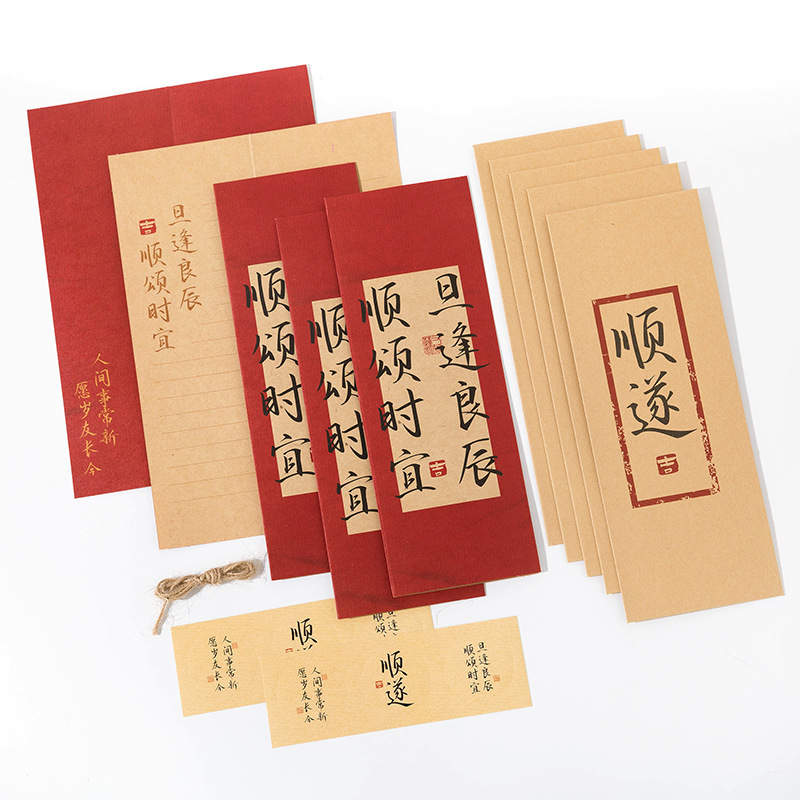 人间事常新
愿岁友长今
旦逢良辰
顺颂时宜
吉
顺颂时宜
顺颂时宜
旦逢良辰
顺颂时宜
吉
顺遂
吉
顺颂
顺
人间事常新
愿岁友长今
旦逢良辰
顺颂时宜
顺遂
人间事常新
愿岁友长今